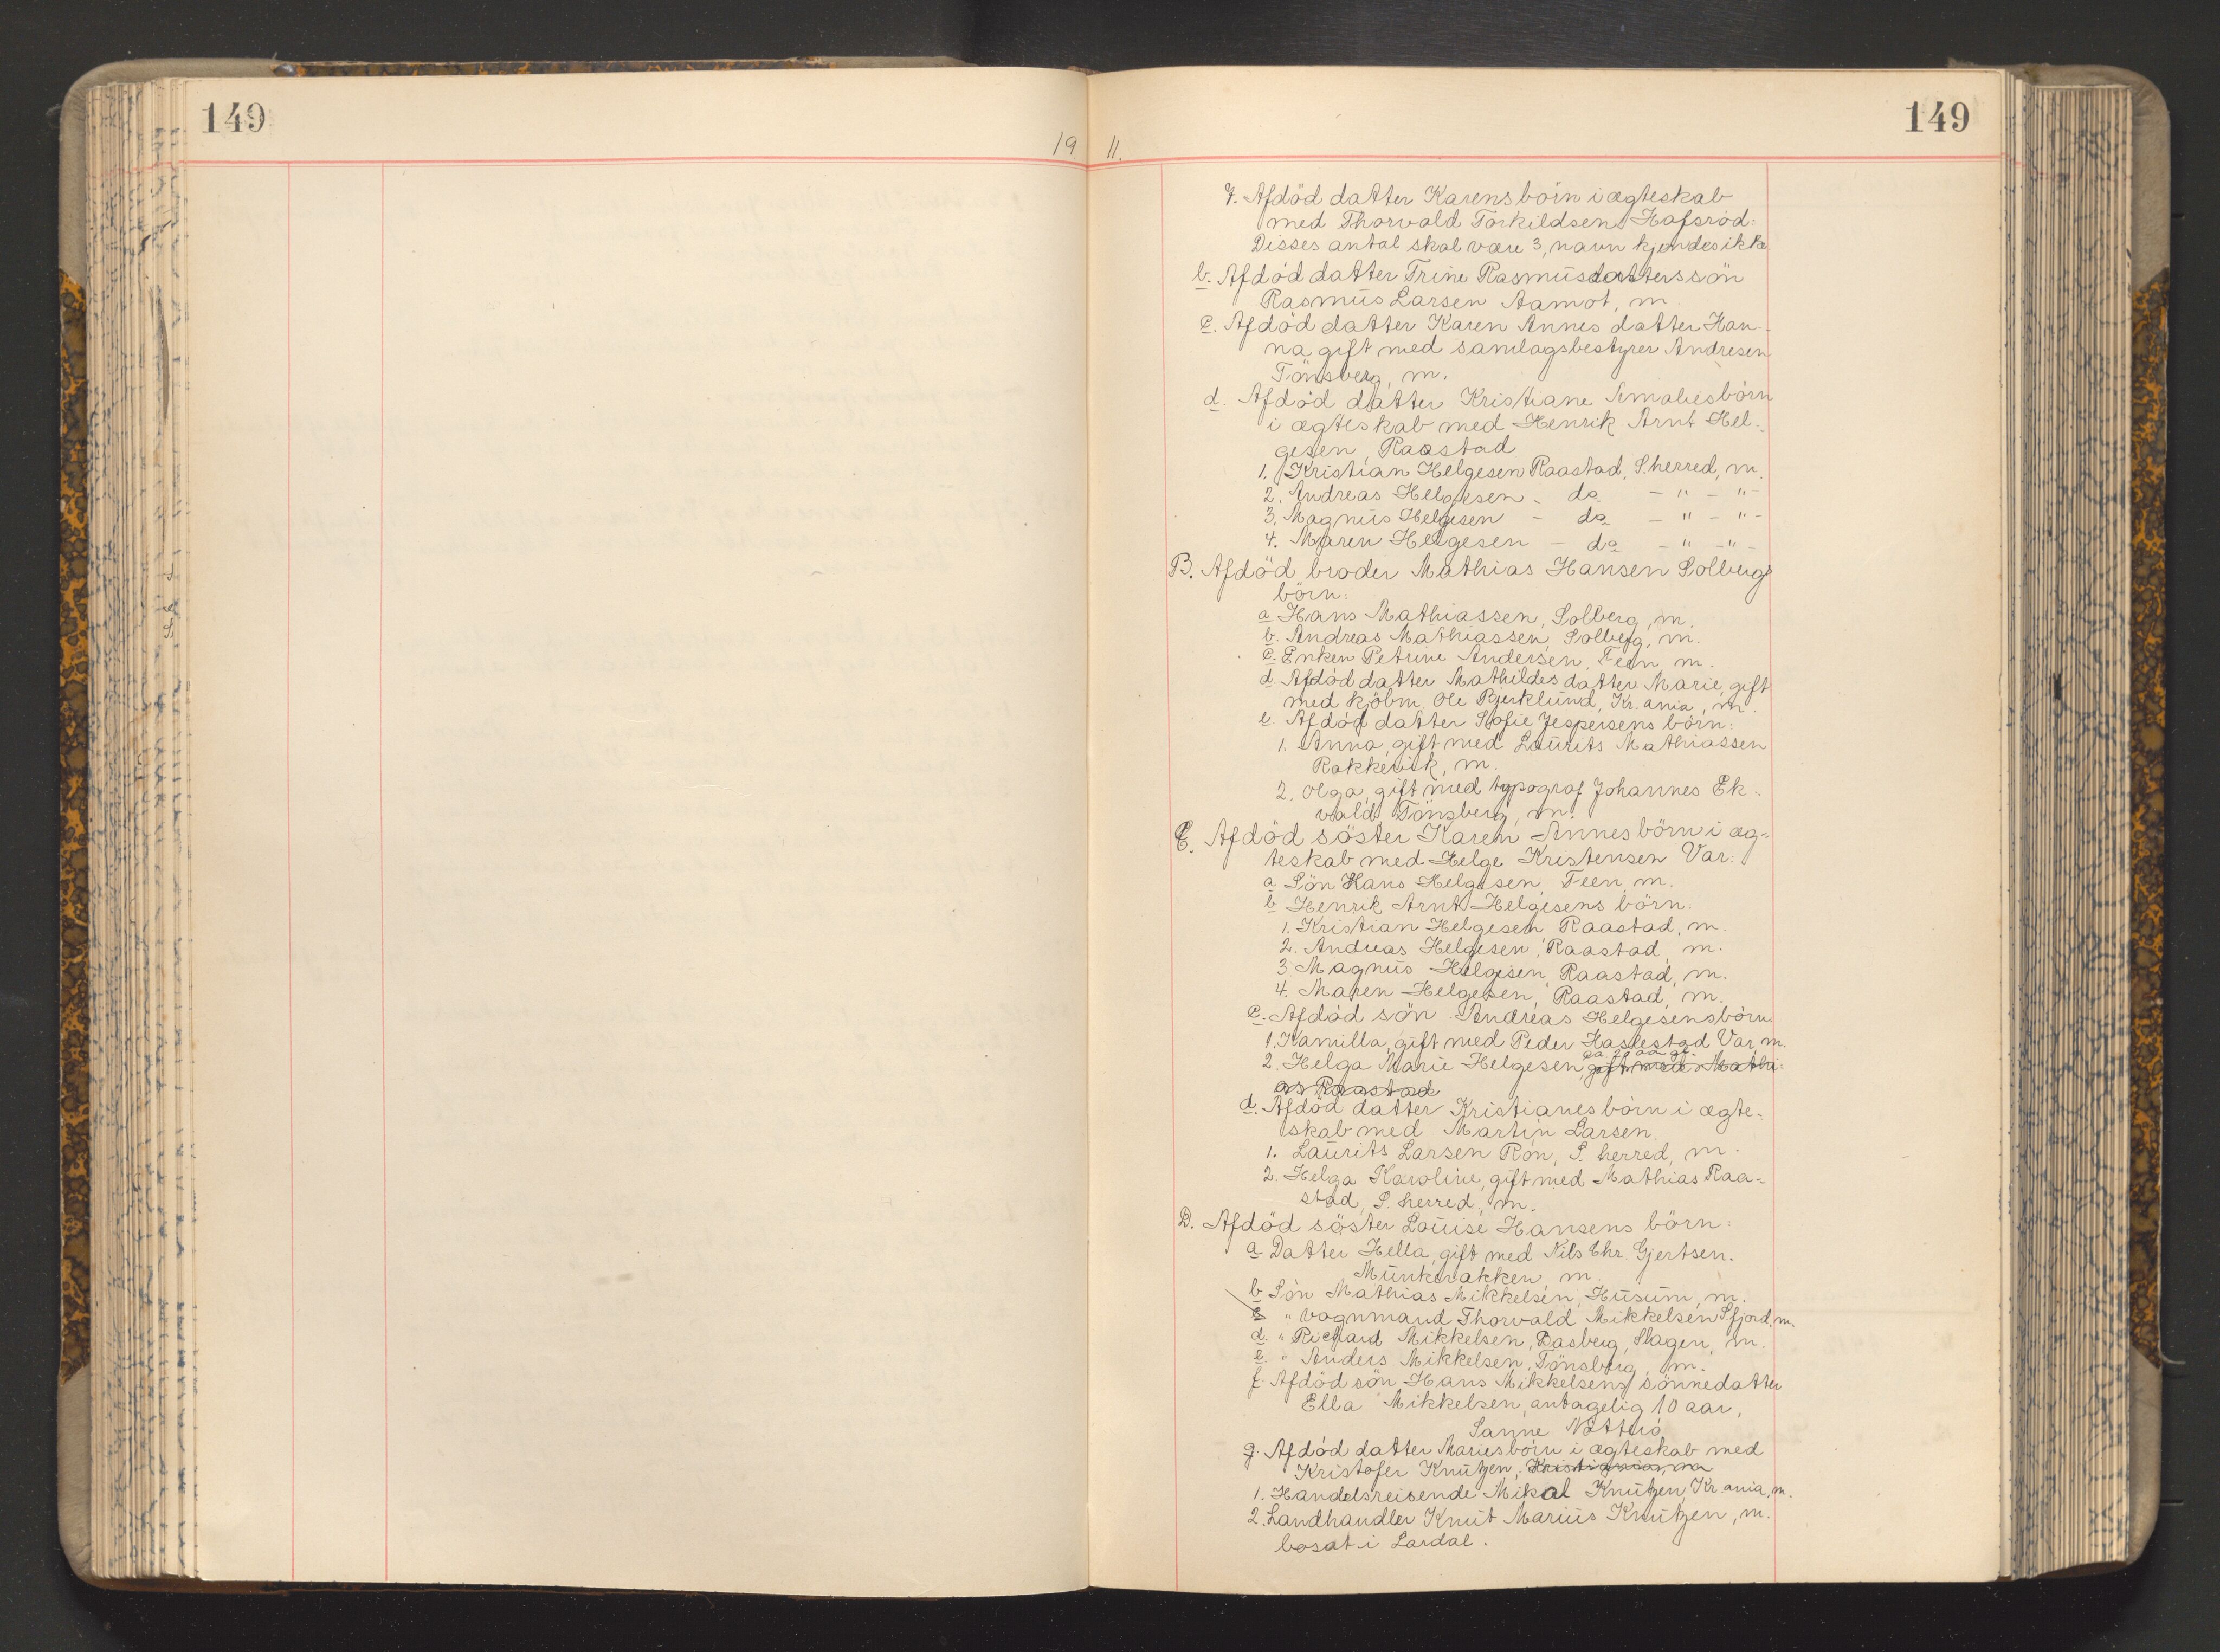 149
149
19 11.
7. Afdöd datter Karens börn i ægteskab
med Thorvald Torkildsen, Hafsröd:
Disses antal skal være 3, navn kjendes ikke
b. Afdöd datter Trine Rasmusdatters sön
Rasmus Larsen Aamot, m.
c. Afdöd datter Karen Annes datter Han-
na gift med samlagsbestyrer Andresen
Tönsberg, m.
d. Afdöd datter Kristiane Amalies börn
i ægteskab med Henrik Arnt Hel-
gesen, Raastad
1. Kristian Helgesen Raastad, S. herred, m.
2. Andreas Helgesen - do - " - " -
3. Magnus Helgesen - do - " - " -
4. Maren Helgesen - do - " - " -
B. Afdöd broder Mathias Hansen Solbergs
börn:
a Hans Mathiassen, Solberg, m.
b. Andreas Mathiassen, Solberg, m.
c. Enken Petrine Andersen, Feen m.
d. Afdöd datter Mathildes datter Marie, gift
med kjöbm. Ole Bjerklund, Kr.ania, m.
e. Afdöd datter Sofie Jespersens börn:
1. Anna, gift med Laurits Mathiassen
Rakkevik, m.
2. Olga, gift med typograf Johannes Ek-
vald Tönsberg, m.
C. Afdöd söster Karen Annes börn i æg-
teskab med Helge Kristensen Var:
a Sön Hans Helgesen, Feen, m.
b Henrik Arnt Helgesens börn:
1. Kristian Helgesen Raastad, m.
2. Andreas Helgesen, Raastad, m.
3. Magnus Helgesen, Raastad, m.
4. Maren Helgesen, Raastad, m.
c. Afdöd sön Andreas Helgesens börn
1. Kamilla, gift med Peder Haslestad Var, m.
2. Helga Marie Helgesen, gift med Mathi-
as Raastad
d. Afdöd datter Kristianes börn i ægte-
skab med Martin Larsen.
1. Laurits Larsen Rön, S. herred, m.
2. Helga Karoline, gift med Mathias Raa-
stad, S. herred, m.
D. Afdöd söster Louise Hansens börn:
a Datter Hella, gift med Nils Chr. Gjertsen.
Munkerakken, m.
b Sön Mathias Mikkelsen, Husum, m.
c " Vognmand Thorvald Mikkelsen S.fjord, m.
d. " Richard Mikkelsen, Basberg, Slagen, m.
e " Anders Mikkelsen, Tönsberg, m.
f. Afdöd sön Hans Mikkelsens sönnedatter
Ella Mikkelsen, antagelig 10 aar,
Sanne Nötterö
g. Afdöd datter Maries börn i ægteskab med
Kristofer Knutzen, Kristiania, m
1. Handelsreisende Mikal Knutzen, Kr.ania, m.
2. Landhandler Knut Marius Knutzen, m.
bosat i Lardal.